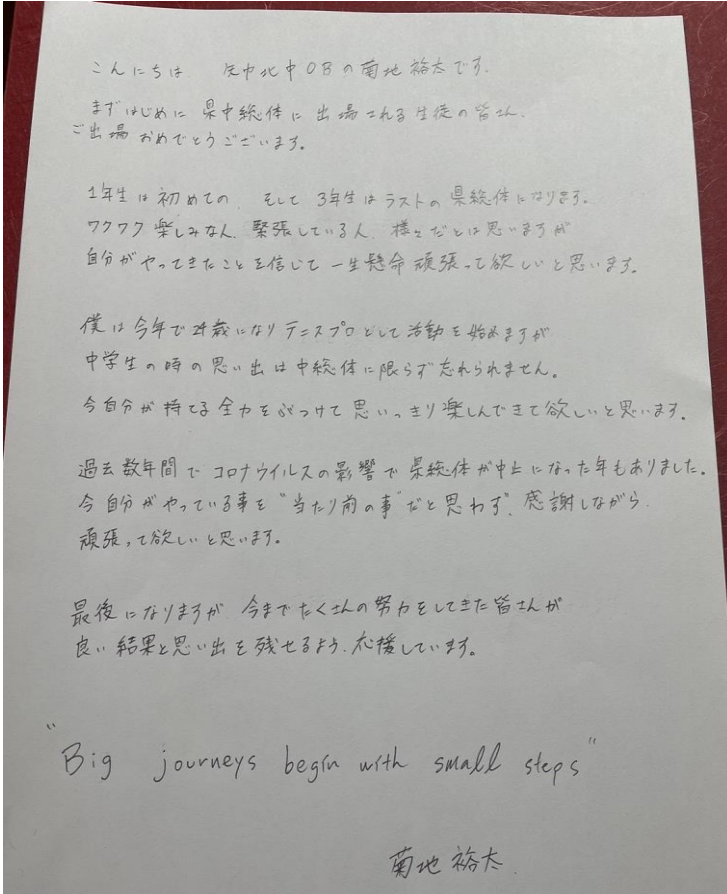 こんにちは 矢巾北中OBの菊地裕太です.
まずはじめに 県中総体に出場される生徒の皆さん.
ご出場おめでとうございます。
1年生は初めての. そして3年生はラストの県総体になります。
ワクワク楽しみな人. 緊張している人. 様々だとは思いますが
自分がやってきたことを信じて一生懸命頑張って欲しいと思います。
僕は今年で24歳になりテニスプロとして活動を始めますが
中学生の時の思い出は中総体に限らず忘れられません。
今自分が持てる全力をぶつけて思いっきり楽しんできて欲しいと思います。
過去数年間でコロナウイルスの影響で県総体が中止になった年もありました。
今自分がやっている事を"当たり前の事"だと思わず. 感謝しながら.
頑張って欲しいと思います。
最後になりますが. 今までたくさんの努力をしてきた皆さんが
良い結果と思い出を残せるよう.応援しています。
"Big journeys begin with small steps"
菊地裕太